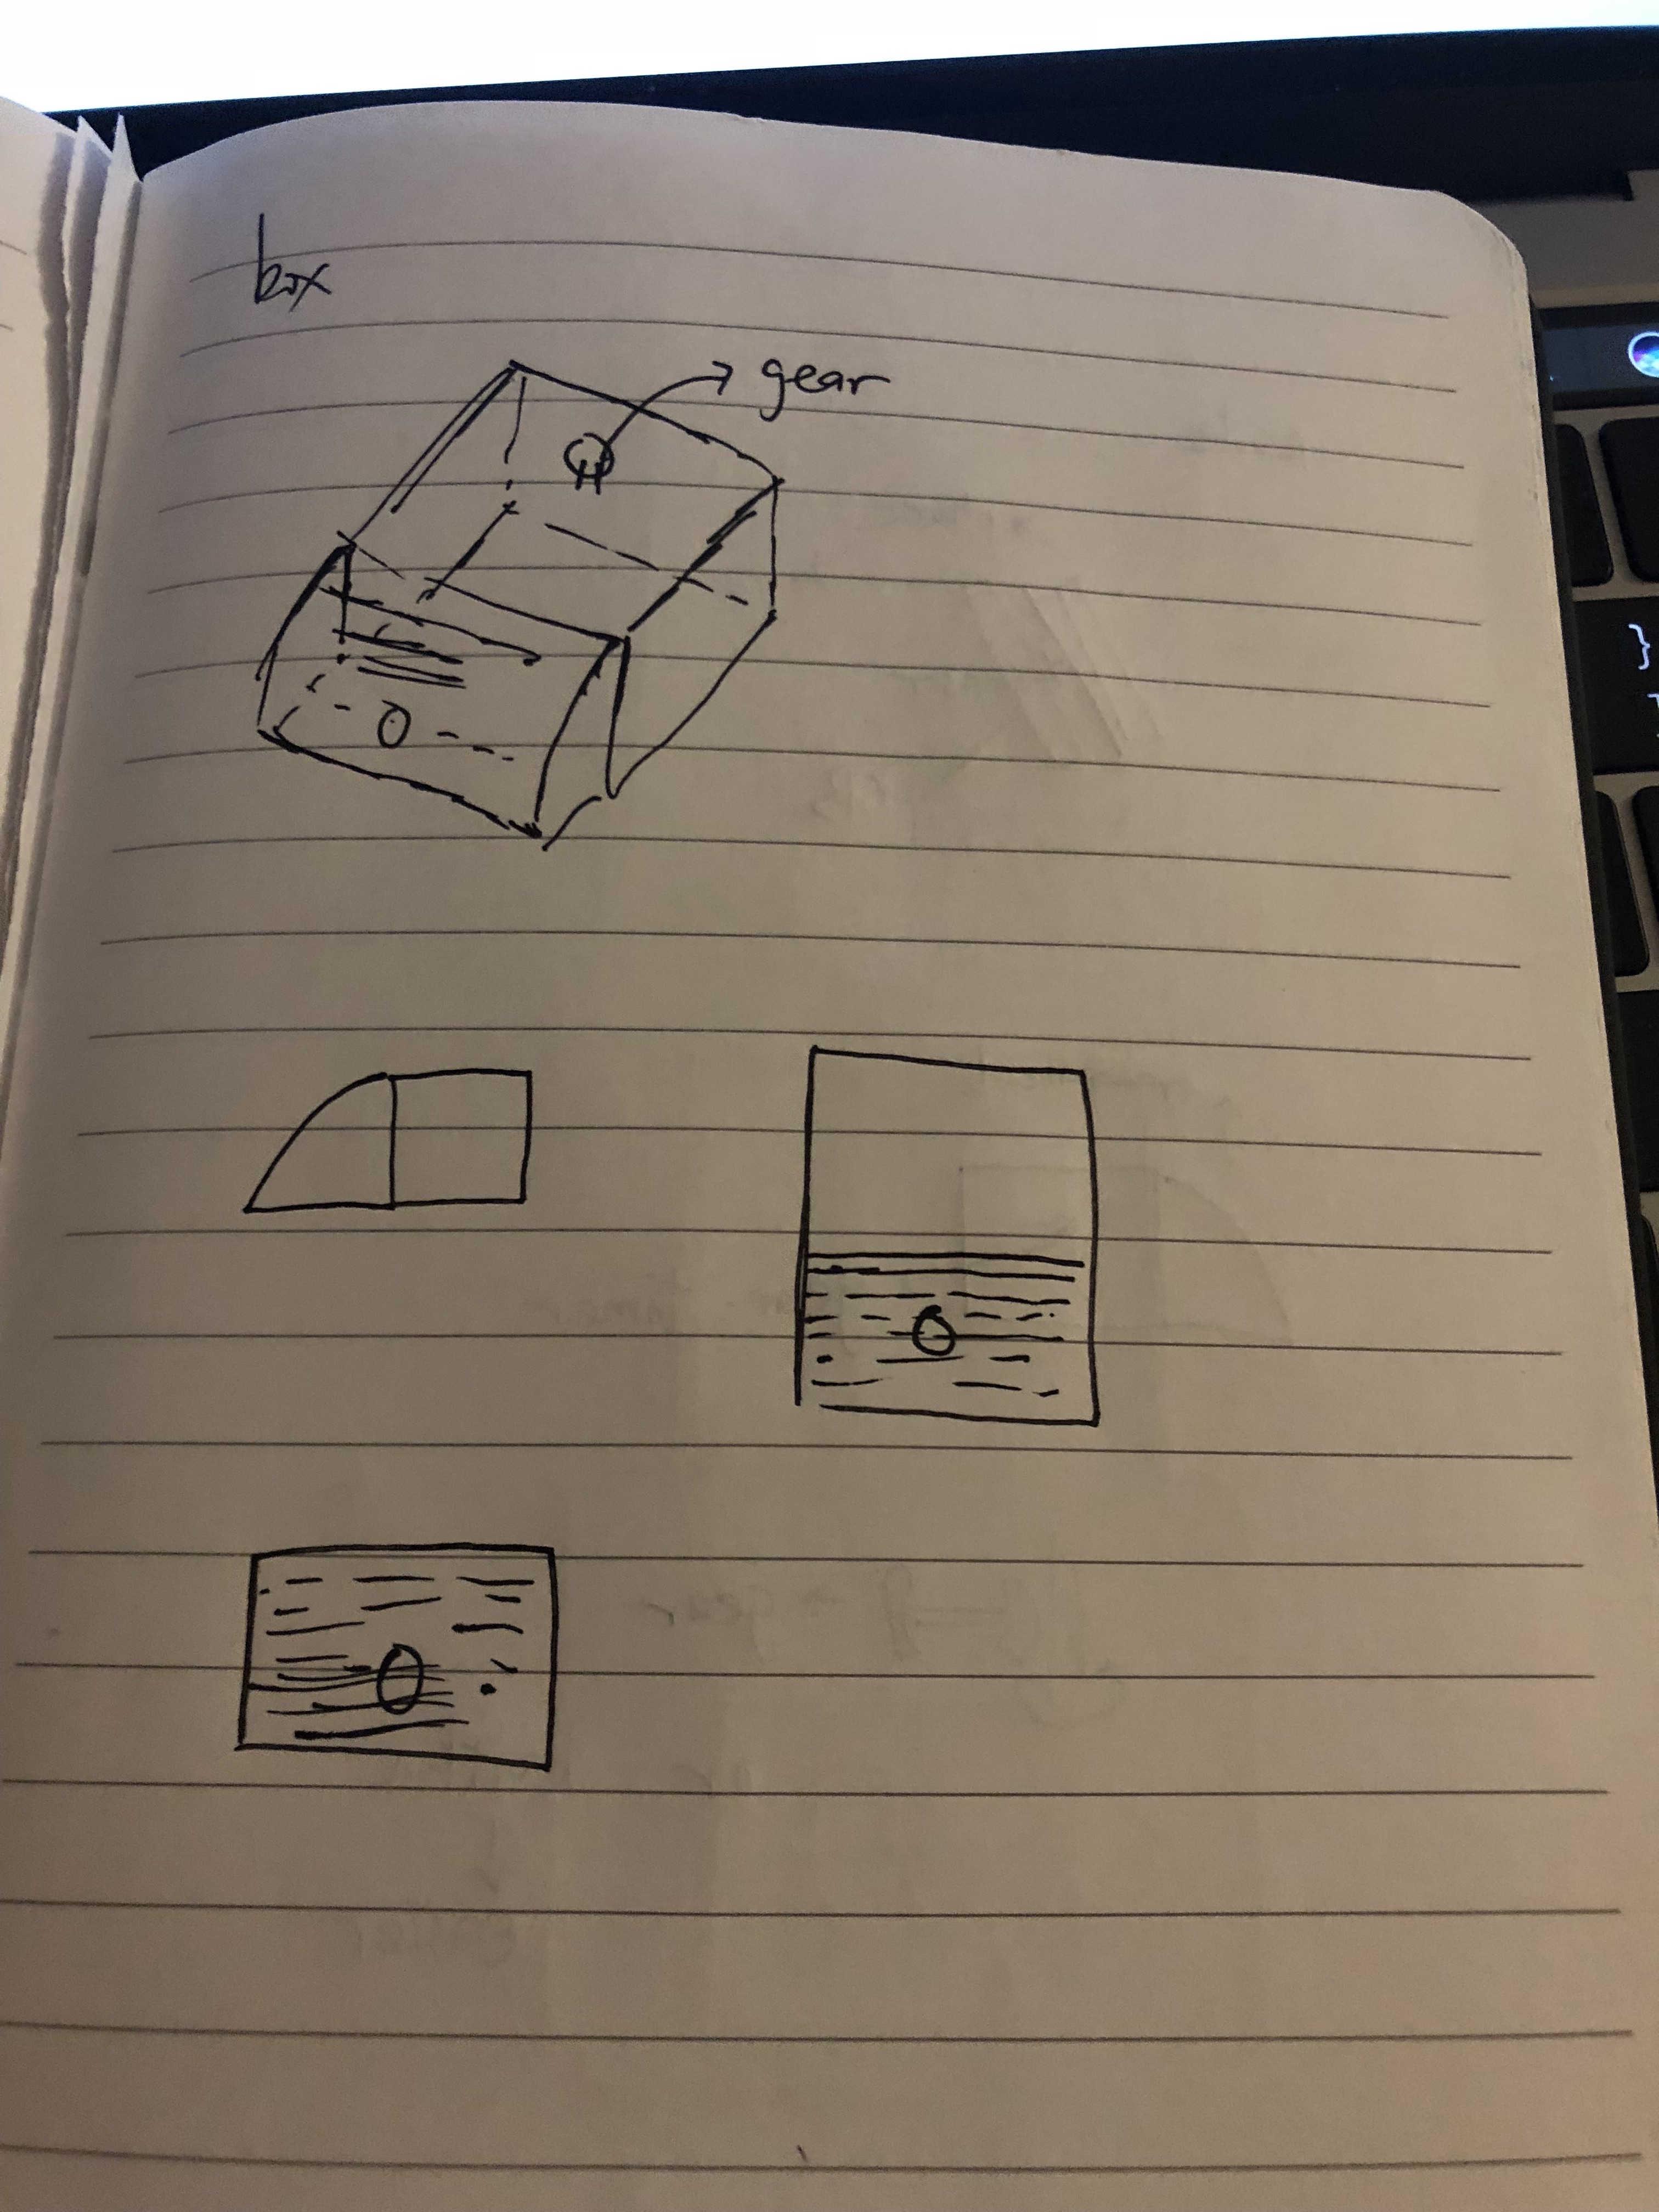 box
gear
}